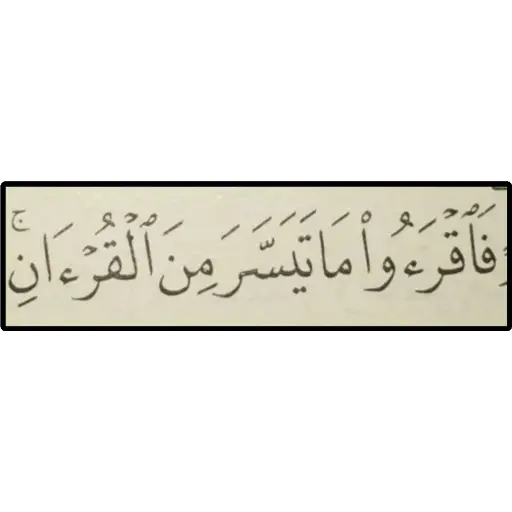 فَٱقْرَءُوا۟ مَا تَيَسَّرَ مِنَ ٱلْقُرْءَانِ ۚ